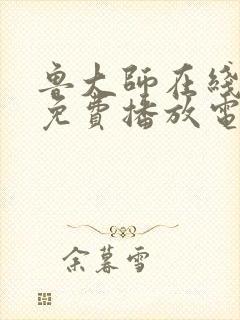 鲁大師在綫
免費播放電
余暮雪